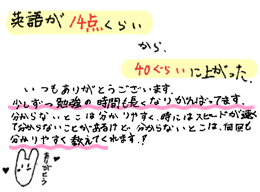 英語が14点くらい
から、
40ぐらいに上がった.
いつもありがとうございます.
少しずつ勉強の時間も長くなりがんばってます.
分からないとこは分かりやすく、時にはスピードが速く
て分からないことがあるけど分からないとこは、何回も
分かりやすく教えてくれます!
ありがとう